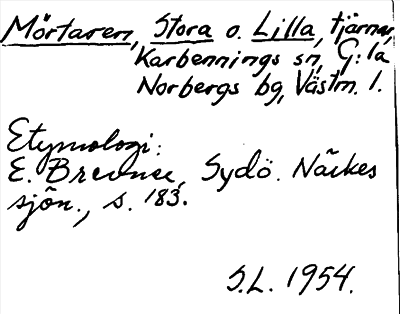 Mörtaren, Stora o. Lilla, tjärnar,
Karbennings sn, G:la
Norbergs bg, Västm. l.
Etymologi:
E. Brevner, Sydö. Närkes
sjön., s. 183.
S.L. 1954.